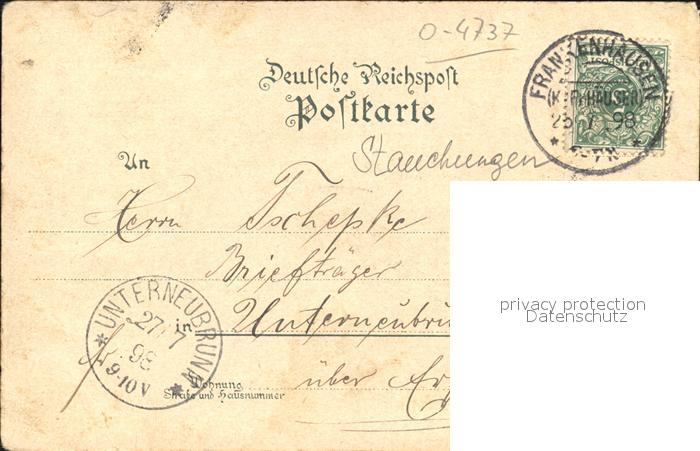 O-4737
Deutsche Reichspost
Postkarte
FRANKENHAUSEN
(KYFFHÄUSER)
7 98
An
Stauchungen
Herrn Tschepke
Briefträger
in Unterneubru
UNTERNEUBRUNN
27 7
98
9-10 V
Wohnung
Straße und Hausnummer
über
privacy protection
Datenschutz